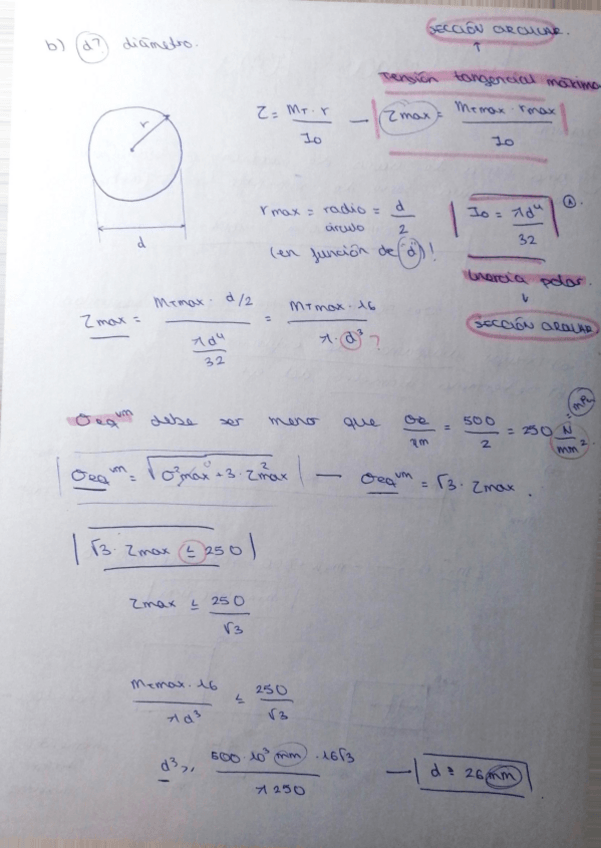 SECCIÓN CIRCULAR.
↑
b) d? diámetro.
Tensión tangencial máxima
τ = Mт · r / I₀ — | τmax = Mтmax · rmax / I₀ |
r
rmax = radio círculo = d/2 | I₀ = πd⁴/32 |
(en función de "d")!
d
Inercia polar.
↓
SECCIÓN CIRCULAR
τmax = (Mтmax · d/2) / (πd⁴/32) = Mтmax · 16 / π · d³ ?
MPa
σeq^VM debe ser meno que σe/γm = 500/2 = 250 N/mm².
| σeq^VM = √(σ²max + 3 · τ²max) | — σeq^VM = √3 · τmax.
0
| √3 · τmax ≤ 250 |
τmax ≤ 250/√3
Mтmax · 16 / πd³ ≤ 250/√3
d³ ≥ 500 · 10³ mm · 16√3 / π 250 — | d ≥ 26 mm |